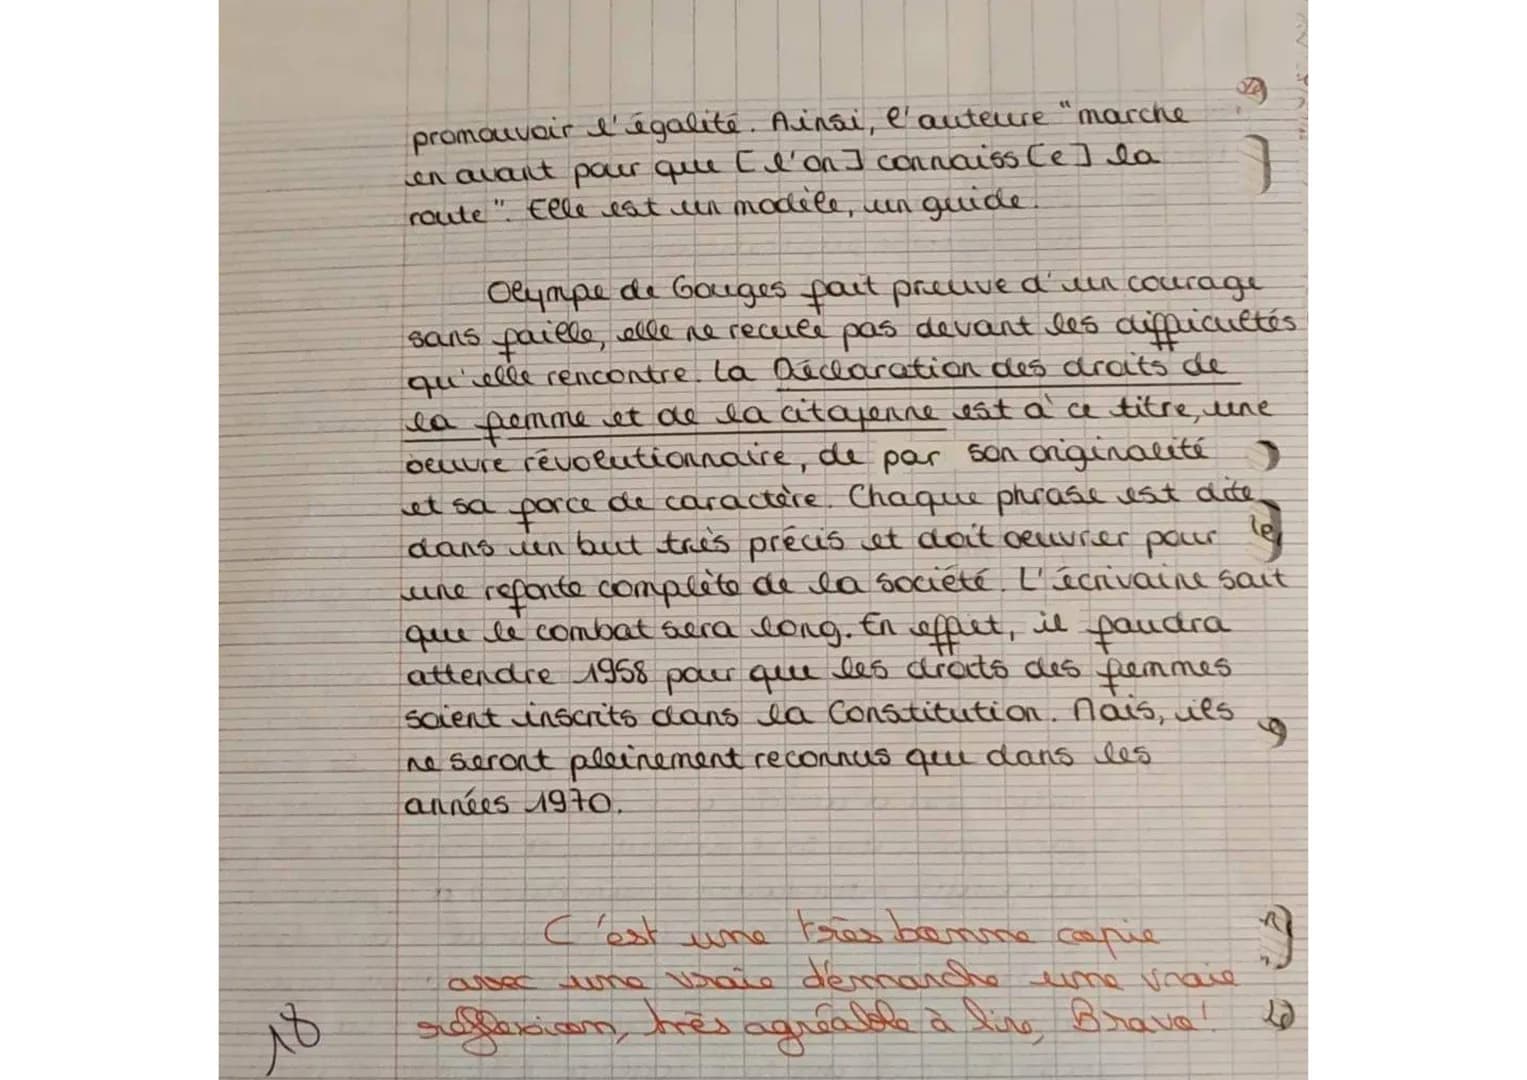 promouvoir l'égalité. Ainsi, l'auteure "marche
en avant pour que [l'on] connaiss[e] la
route". Elle est un modèle, un guide.
Olympe de Gouges fait preuve d'un courage
sans faille, elle ne recule pas devant les difficultés
qu'elle rencontre. La Déclaration des droits de
la femme et de la citoyenne est à ce titre, une
oeuvre révolutionnaire, de par son originalité
et sa force de caractère. Chaque phrase est dite
dans un but très précis et doit oeuvrer pour
une refonte complète de la société. L'écrivaine sait
que le combat sera long. En effet, il faudra
attendre 1958 pour que les droits des femmes
soient inscrits dans la Constitution. Mais, ils
ne seront pleinement reconnus que dans les
années 1970.
C'est une très bonne copie
avec une vraie démarche une vraie
réflexion, très agréable à lire, Bravo!
18